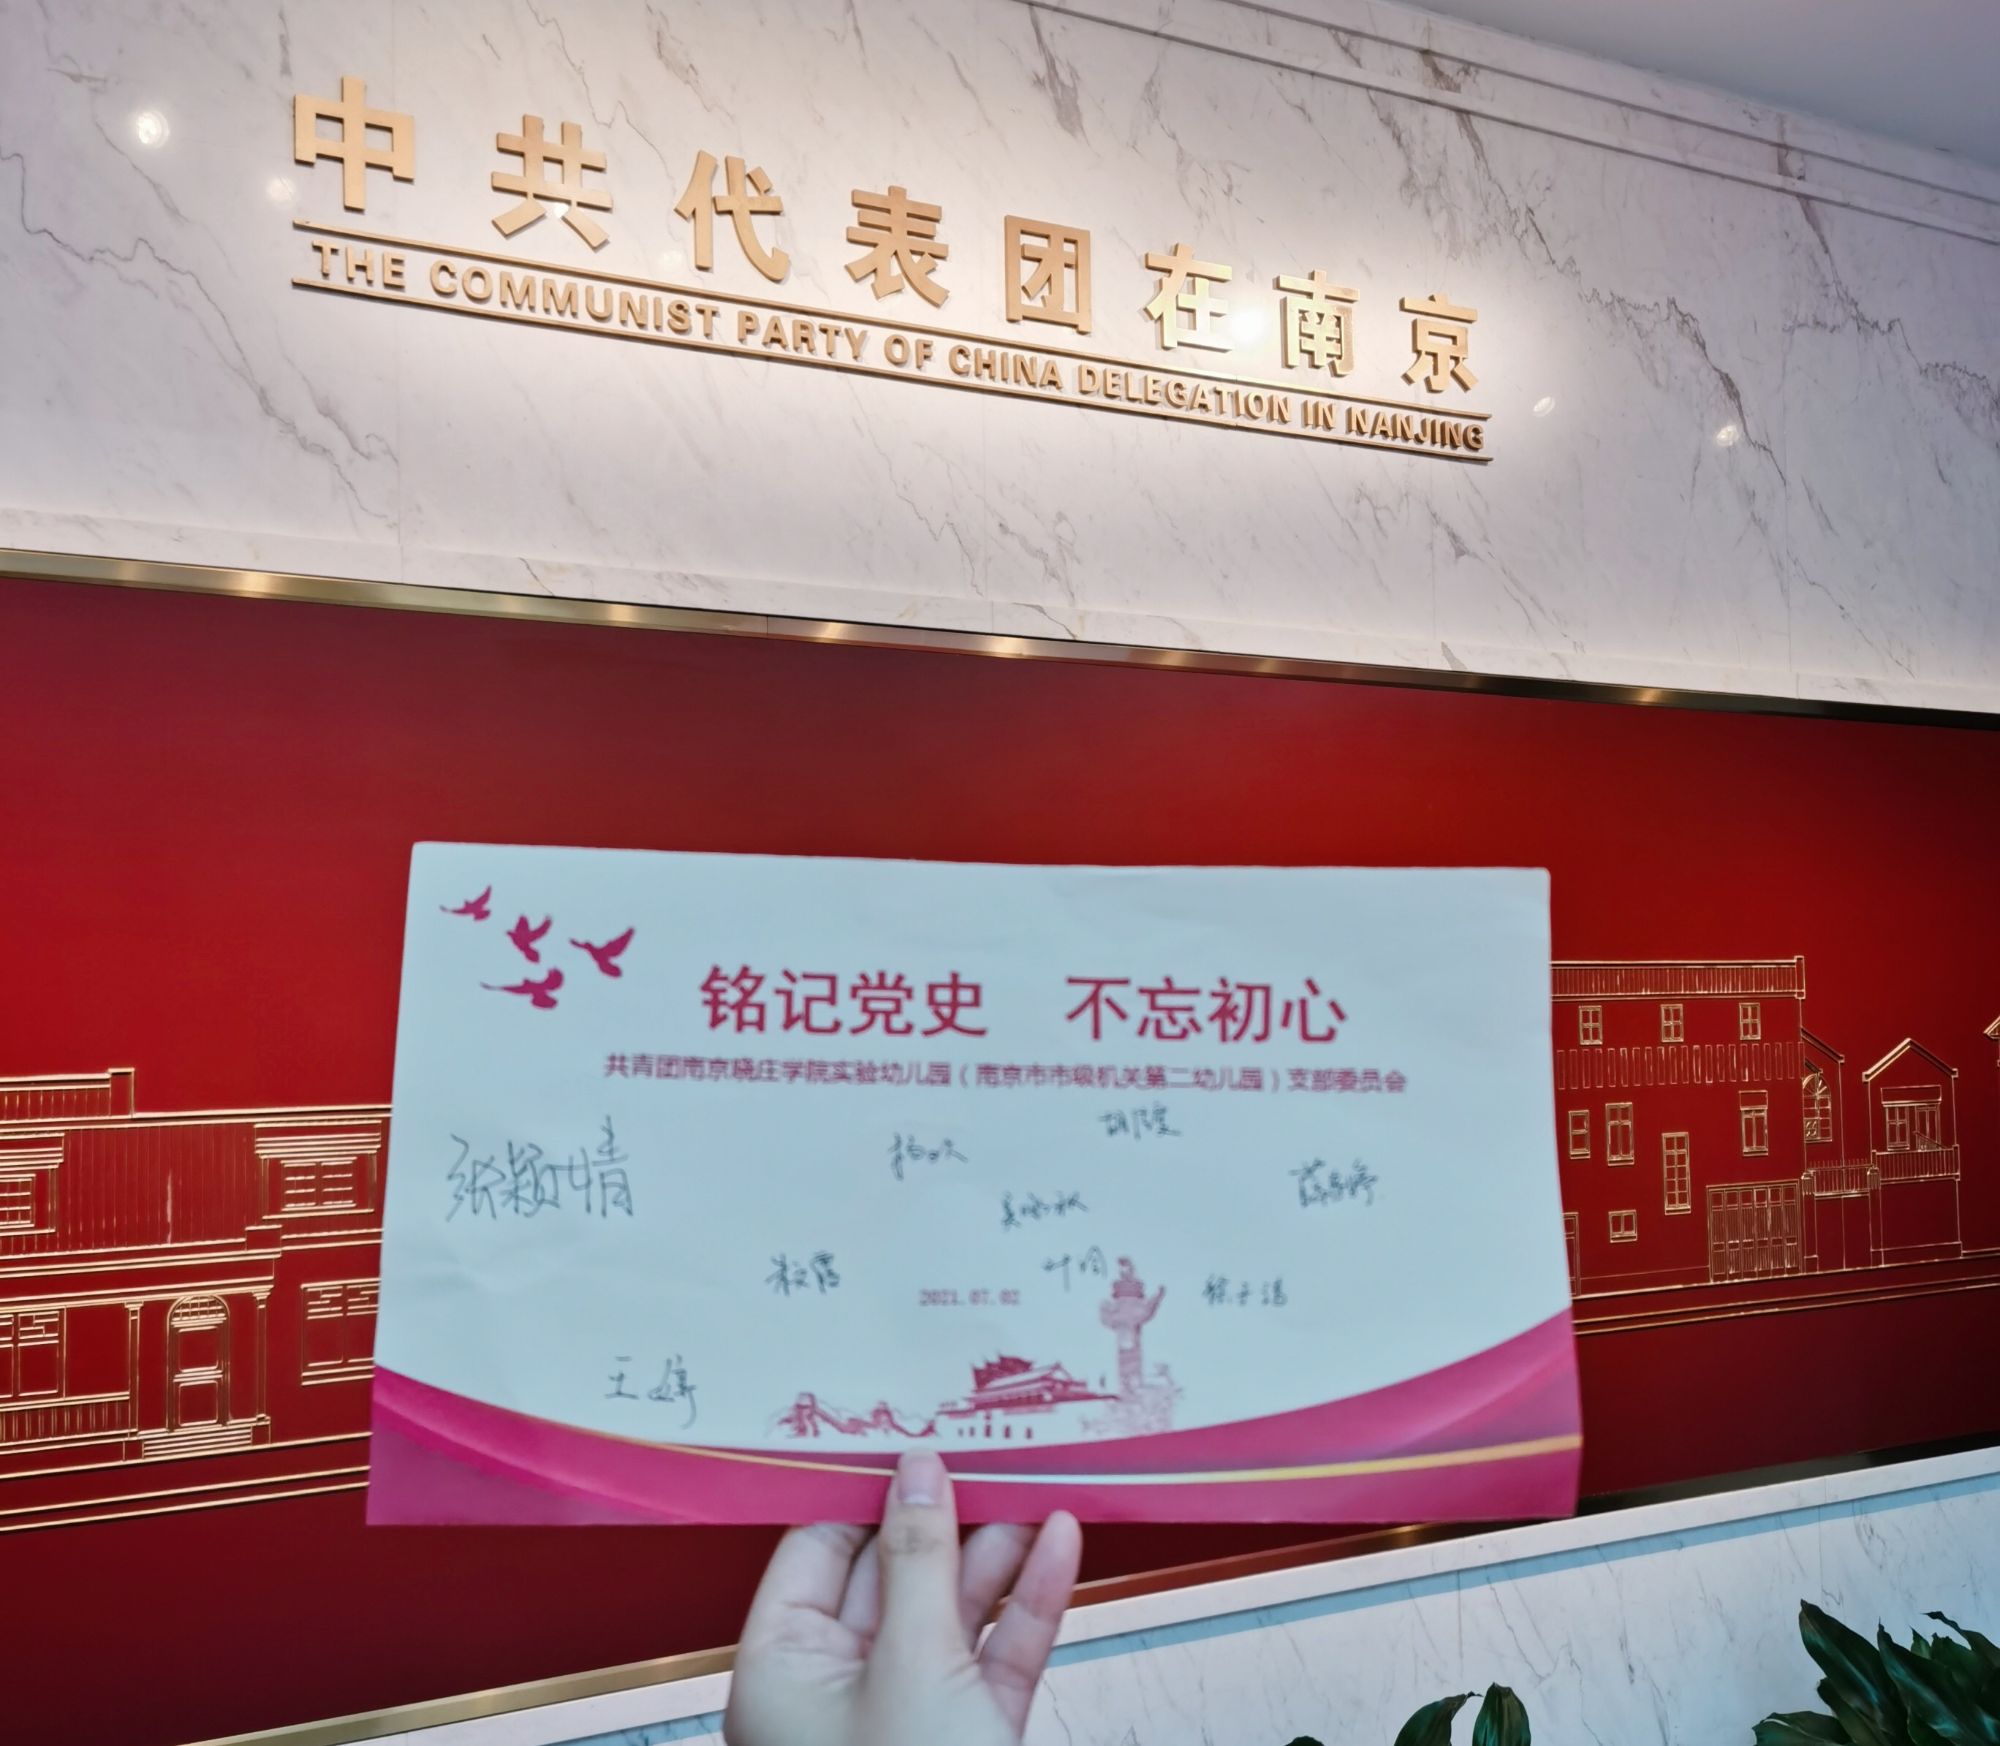 中共代表团在南京
THE COMMUNIST PARTY OF CHINA DELEGATION IN NANJING
铭记党史 不忘初心
共青团南京晓庄学院实验幼儿园（南京市市级机关第二幼儿园）支部委员会
张颖情
2021.07.02
王婷